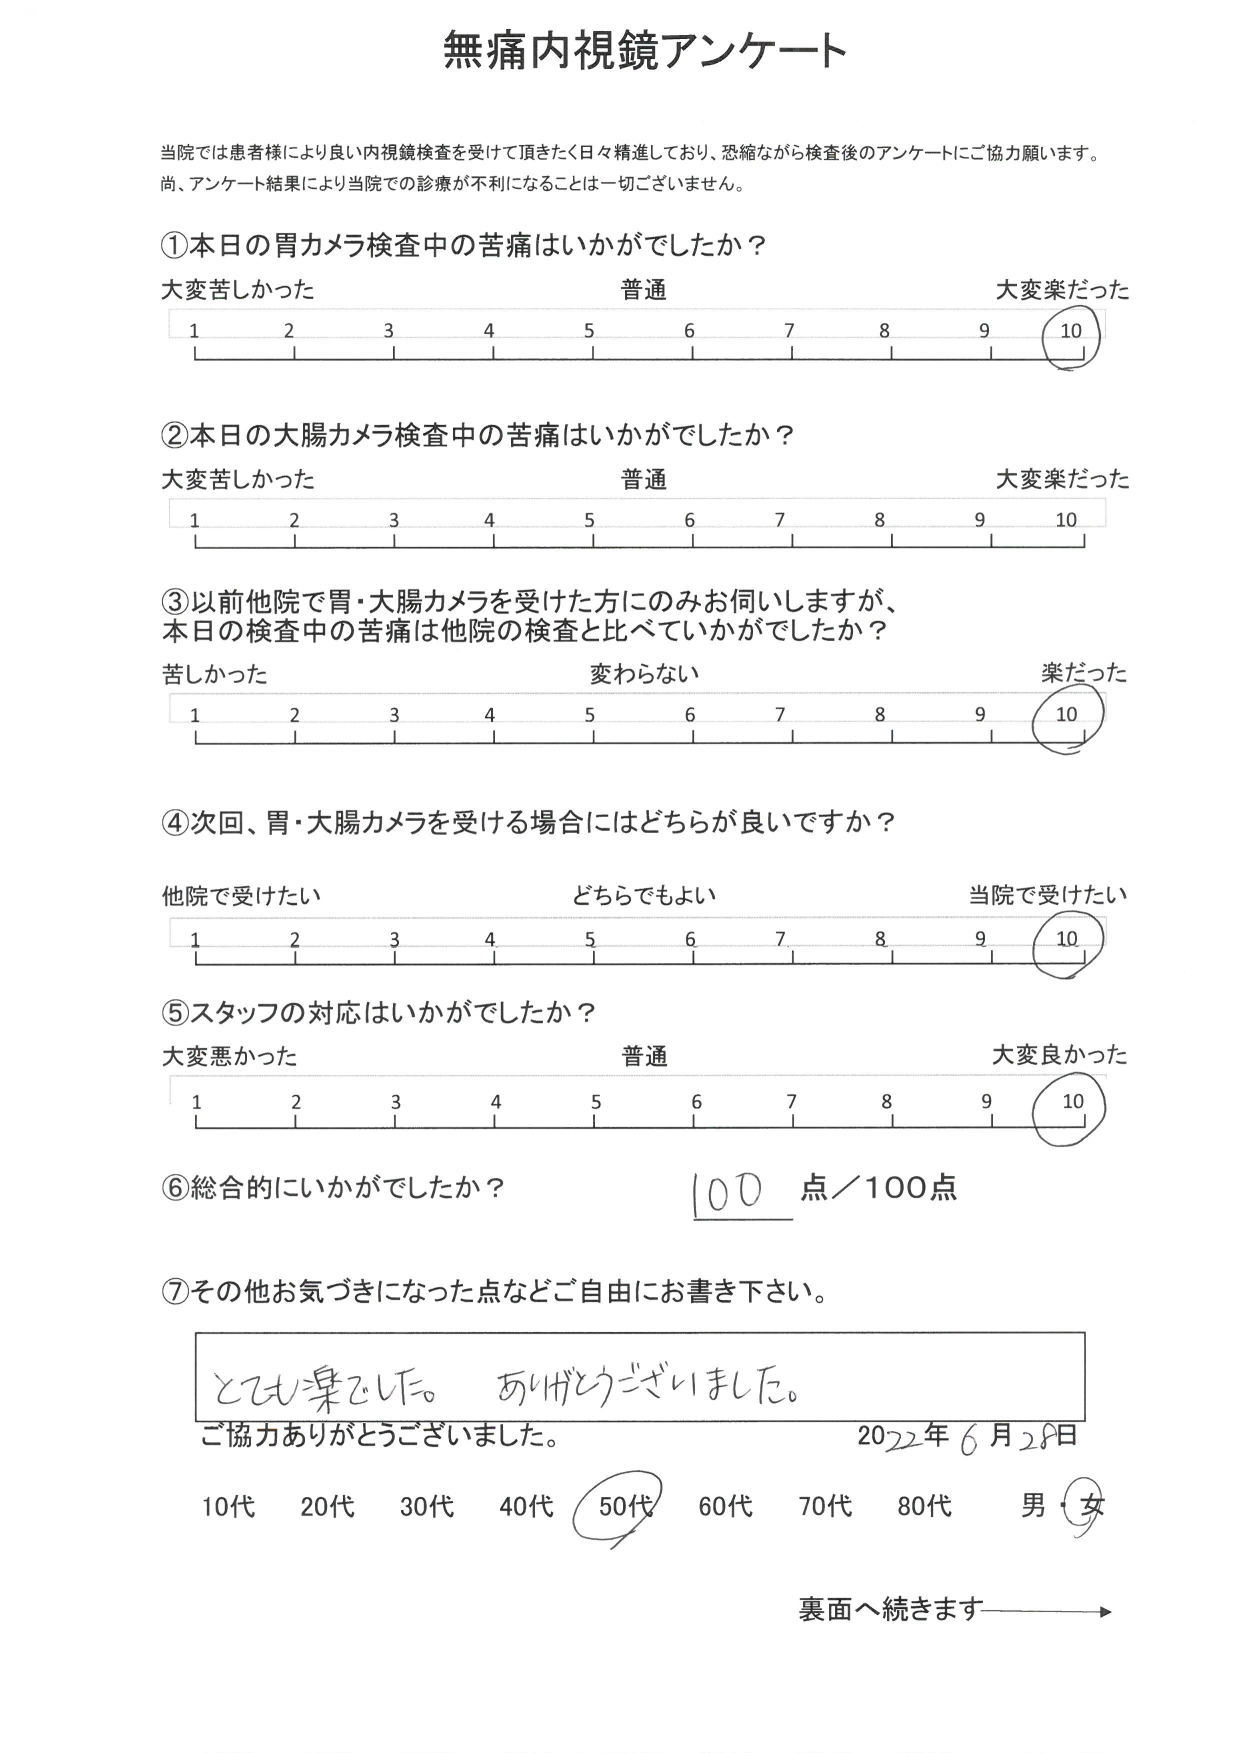 無痛内視鏡アンケート
当院では患者様により良い内視鏡検査を受けて頂きたく日々精進しており、恐縮ながら検査後のアンケートにご協力願います。
尚、アンケート結果により当院での診療が不利になることは一切ございません。
①本日の胃カメラ検査中の苦痛はいかがでしたか？
大変苦しかった 普通 大変楽だった
1 2 3 4 5 6 7 8 9 10
②本日の大腸カメラ検査中の苦痛はいかがでしたか？
大変苦しかった 普通 大変楽だった
1 2 3 4 5 6 7 8 9 10
③以前他院で胃・大腸カメラを受けた方にのみお伺いしますが、
本日の検査中の苦痛は他院の検査と比べていかがでしたか？
苦しかった 変わらない 楽だった
1 2 3 4 5 6 7 8 9 10
④次回、胃・大腸カメラを受ける場合にはどちらが良いですか？
他院で受けたい どちらでもよい 当院で受けたい
1 2 3 4 5 6 7 8 9 10
⑤スタッフの対応はいかがでしたか？
大変悪かった 普通 大変良かった
1 2 3 4 5 6 7 8 9 10
⑥総合的にいかがでしたか？ 100 点／100点
⑦その他お気づきになった点などご自由にお書き下さい。
とても楽でした。 ありがとうございました。
ご協力ありがとうございました。 2022年 6 月 28日
10代 20代 30代 40代 50代 60代 70代 80代 男・女
裏面へ続きます